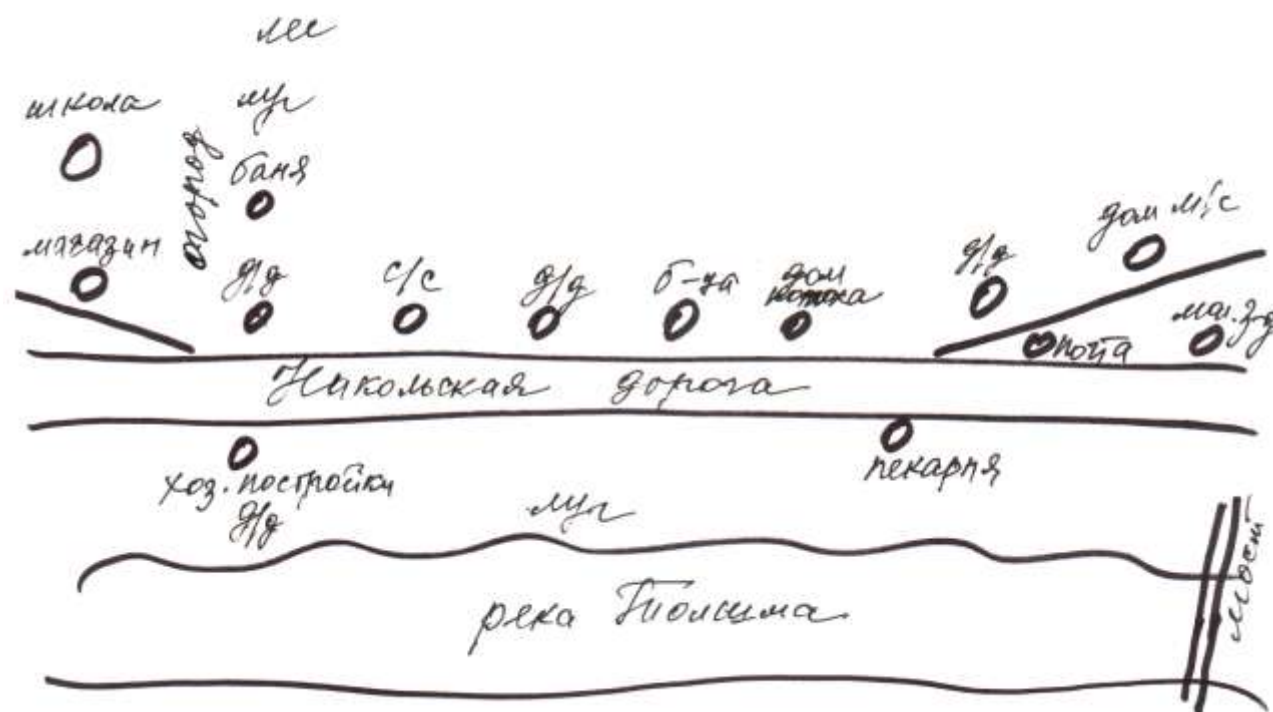 лес
школа
луг
огород
баня
магазин
д/д
с/с
д/д
б-ца
дом
д/д
дом м/с
почта
мас. з-д
Никольская дорога
хоз. постройки
д/д
пекарня
луг
река Толшма
мост